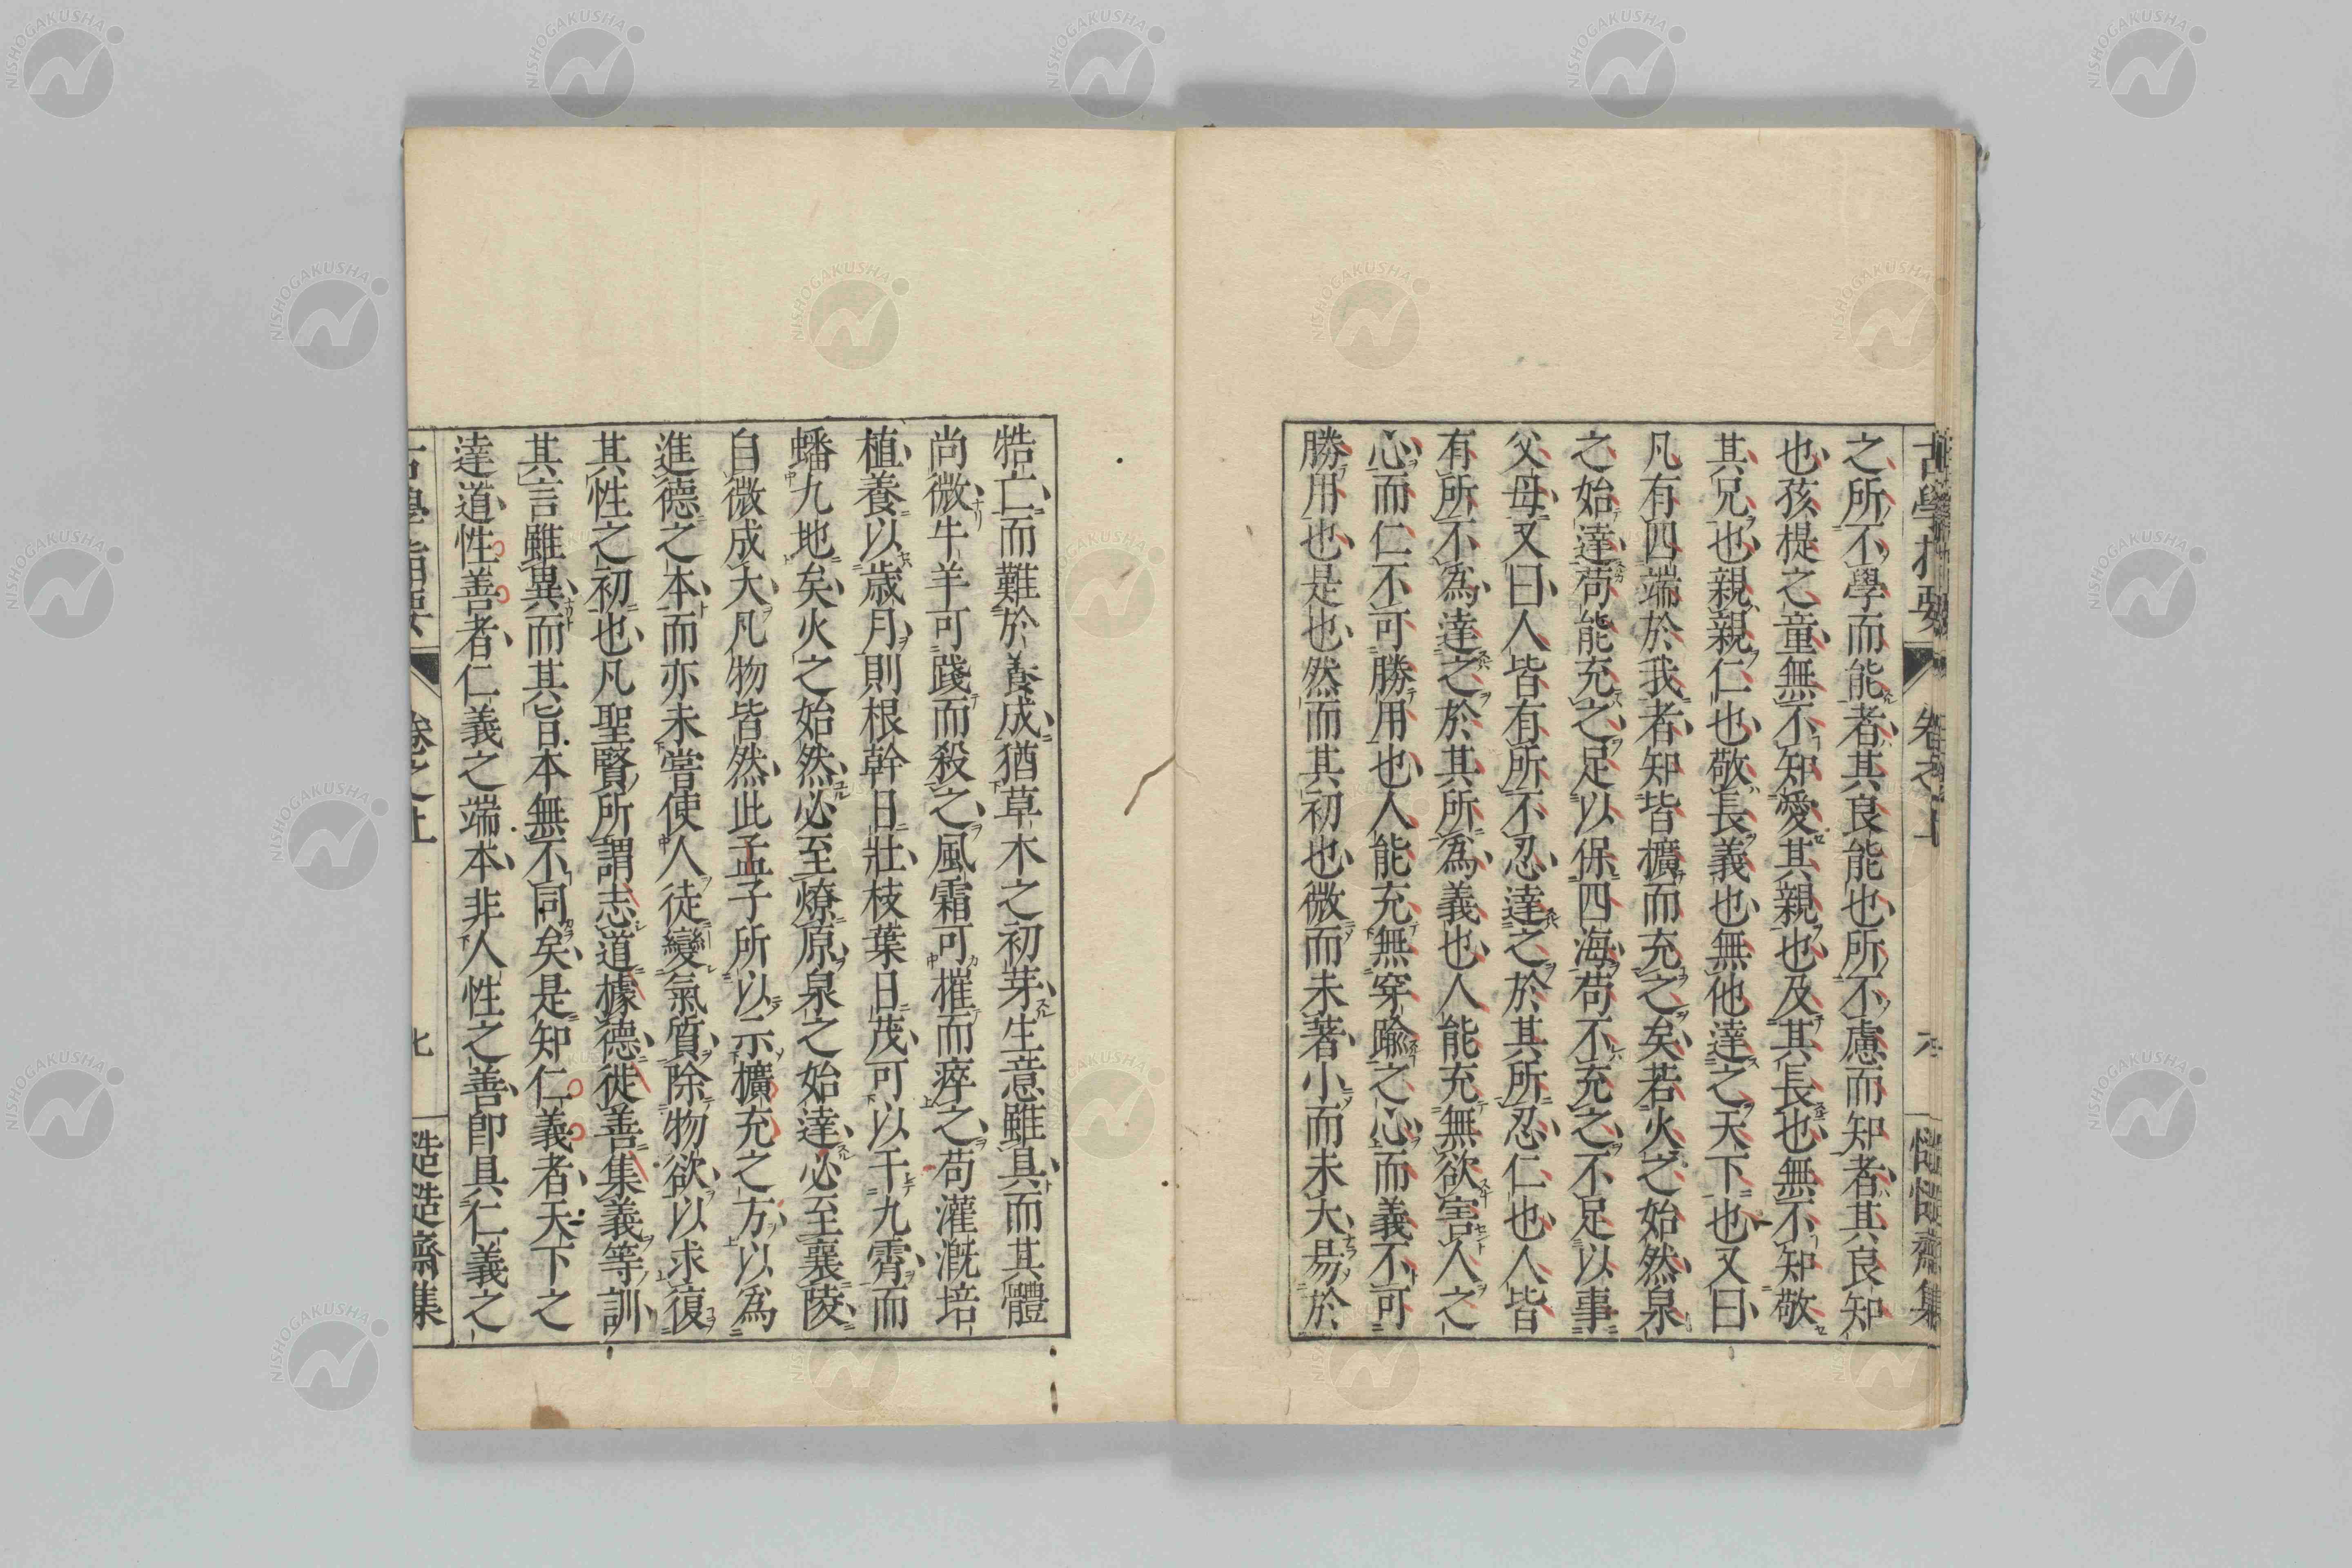 古學指要
卷之上
六
慥慥齋集
之所不學而能者其良能也所不慮而知者其良知
也孩提之童無不知愛其親也及其長也無不知敬
其兄也親親仁也敬長義也無他達之天下也又曰
凡有四端於我者知皆擴而充之矣若火之始然泉
之始達苟能充之足以保四海苟不充之不足以事
父母又曰人皆有所不忍達之於其所忍仁也人皆
有所不爲達之於其所爲義也人能充無欲害人之
心而仁不可勝用也人能充無穿踰之心而義不可
勝用也是也然而其初也微而未著小而未大易於
牿亡而難於養成猶草木之初芽生意雖具而其體
尚微牛羊可踐而殺之風霜可摧而瘁之苟灌漑培
植養以歳月則根幹日壯枝葉日茂可以千九霄而
蟠九地矣火之始然必至燎原泉之始達必至襄陵
自微成大凡物皆然此孟子所以示擴充之方以爲
進德之本而亦未嘗使人徒變氣質除物欲以求復
其性之初也凡聖賢所謂志道據德徙善集義等訓
其言雖異而其旨本無不同矣是知仁義者天下之
達道性善者仁義之端本非人性之善卽具仁義之
古學指要
卷之上
七
慥慥齋集
NISHOGAKUSHA